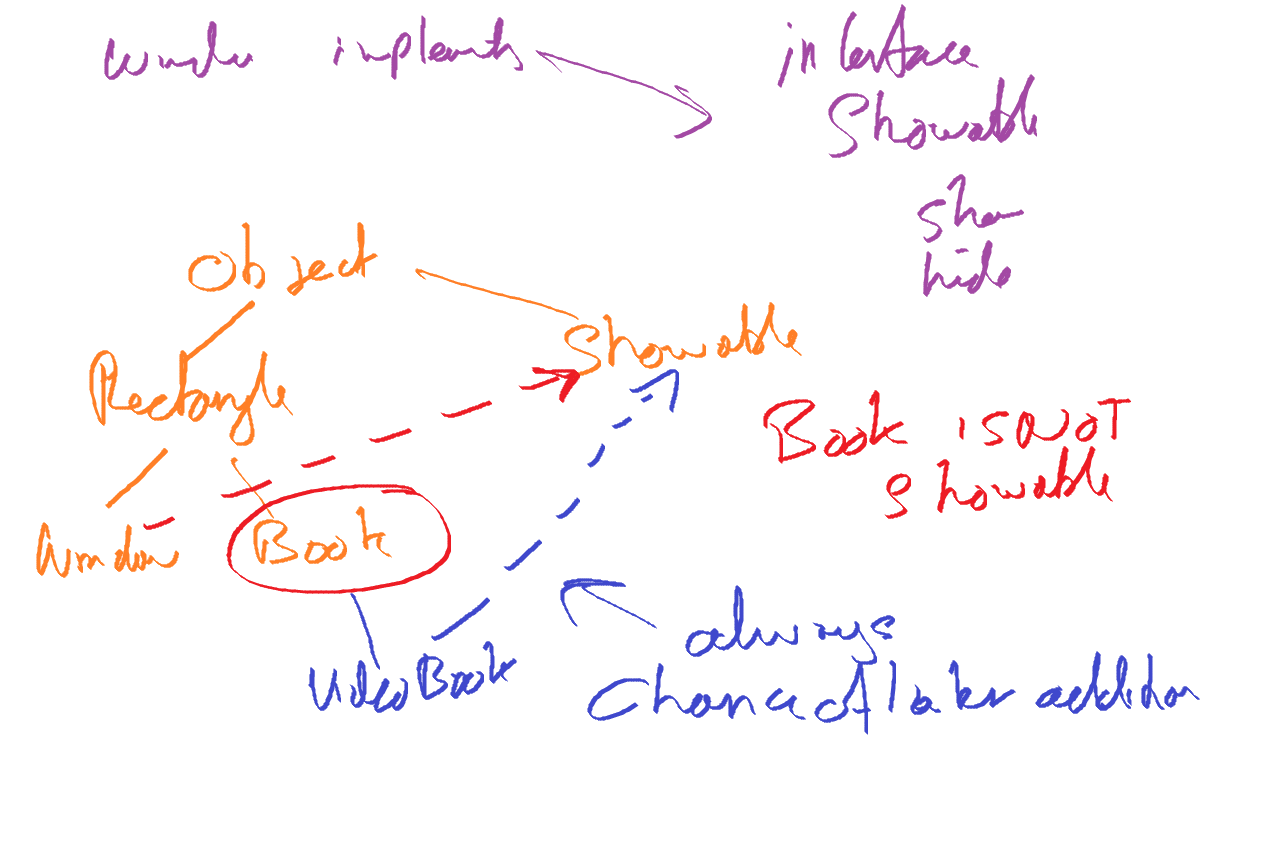 implements interface
Showable
hide
Object
Showable
Rectangle
Book is NOT
Showable
Window Book
always
VideoBook
Chance of later addition